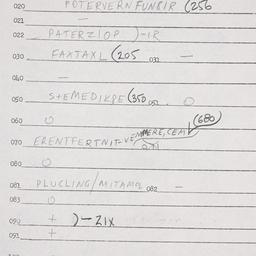 020 POTERVERN FUNBIR (256
021 —
022 PATERZIOP )-IR
030 FAXTAXL (205 031 —
040 —
050 S+EMEDIKPE (350 051 O
060 O (680)
070 ERENTFERTNIT-VEMMERE, CEA
080 O
081 PLUCLING/MITAMO 082 —
083 O
090 + )-ZIX
091 +